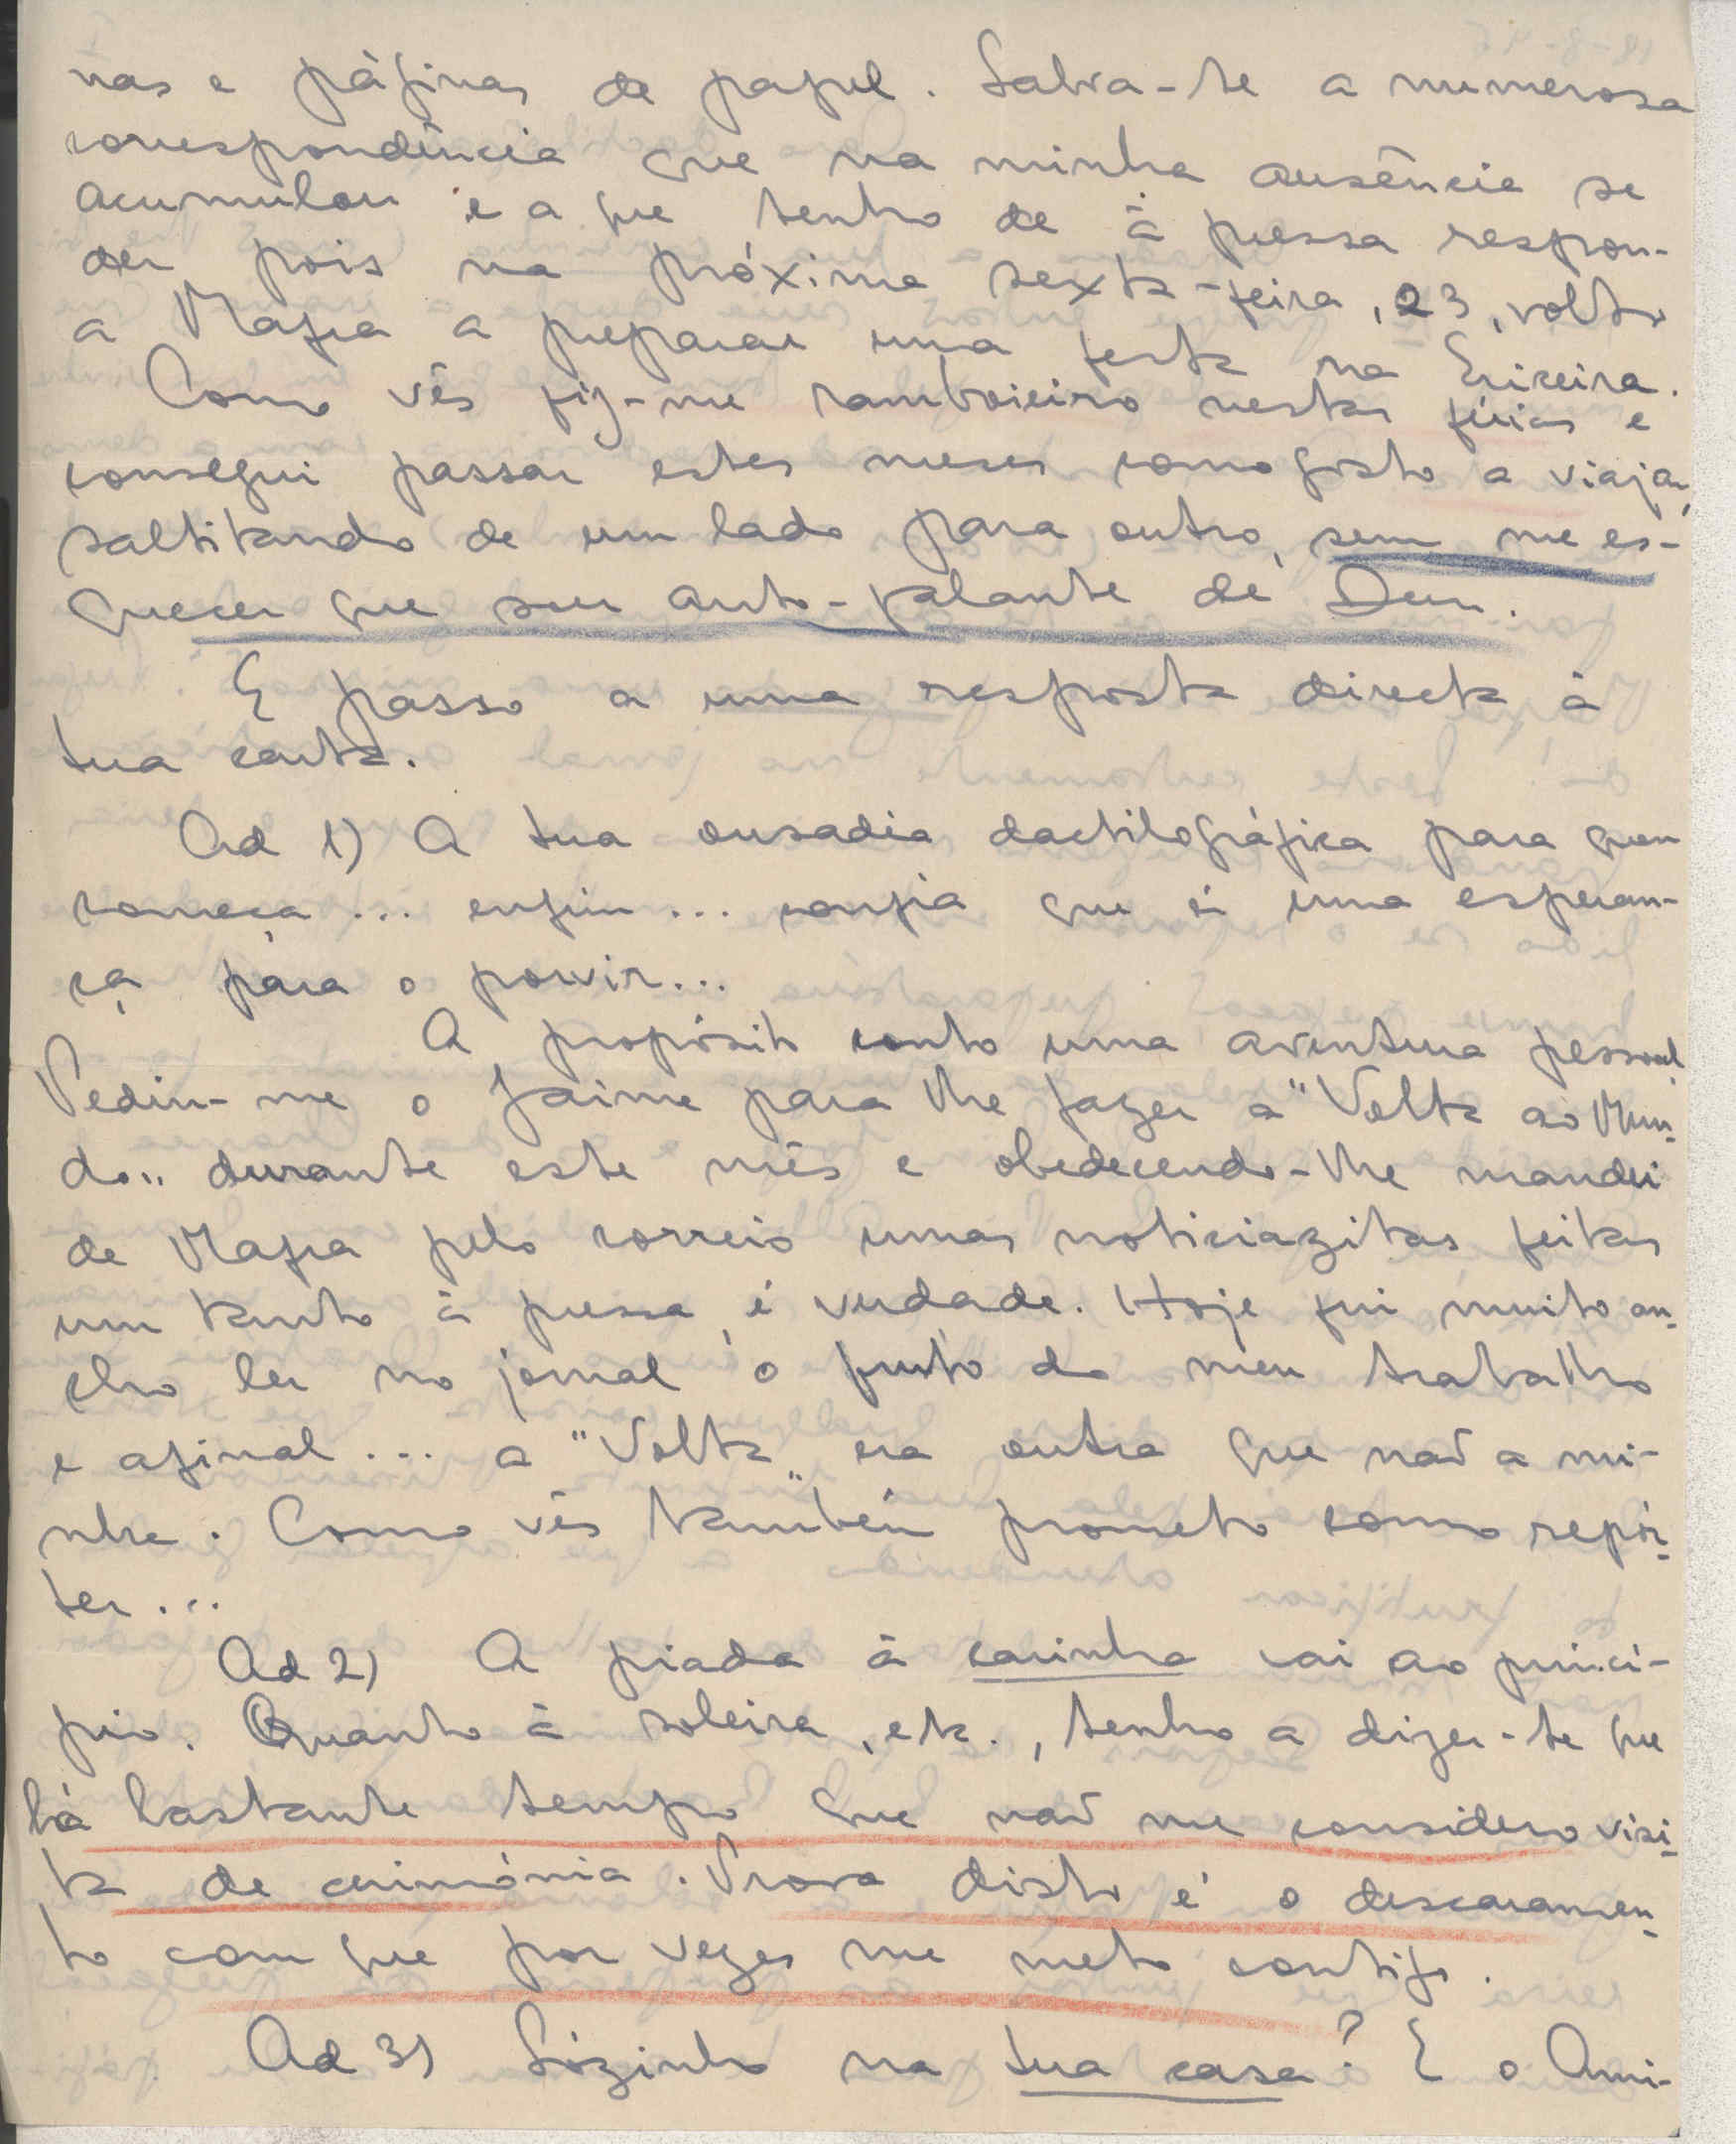 nas e páginas de papel. Salva-te a numerosa
correspondência que na minha ausência se
acumulou e a que tenho de à pressa respon-
der pois na próxima sexta-feira, 23, volto
a Mafra a preparar uma festa na Ericeira.
Como vês fiz-me ramboieiro nestas férias e
consegui passar estes meses como gosto a viajar,
saltitando de um lado para outro, sem me es-
quecer que sou auto-falante de Deus.
E passo a uma resposta directa à
tua carta.
Ad 1) A tua ousadia dactilográfica para quem
começa... enfim... confia que é uma esperan-
ça para o porvir...
A propósito conto uma aventura pessoal.
Pediu-me o Jaime para lhe fazer a "Volta ao Mun-
do" durante este mês e obedecendo-lhe mandei
de Mafra pelo correio umas noticiazitas feitas
um tanto à pressa, é verdade. Hoje fui muito an-
cho ler no jornal o fruto do meu trabalho
e afinal... a "Volta" era outra que não a mi-
nha. Como vês também prometo como repór-
ter...
Ad 2) A piada à carinha vai ao princí-
pio. Quanto à soleira, etc., tenho a dizer-te que
há bastante tempo que não me considero visi-
ta de cerimónia. Prova disto é o descaramen-
to com que por vezes me meto contigo.
Ad 3) Sòzinho na tua casa? E o Ami-